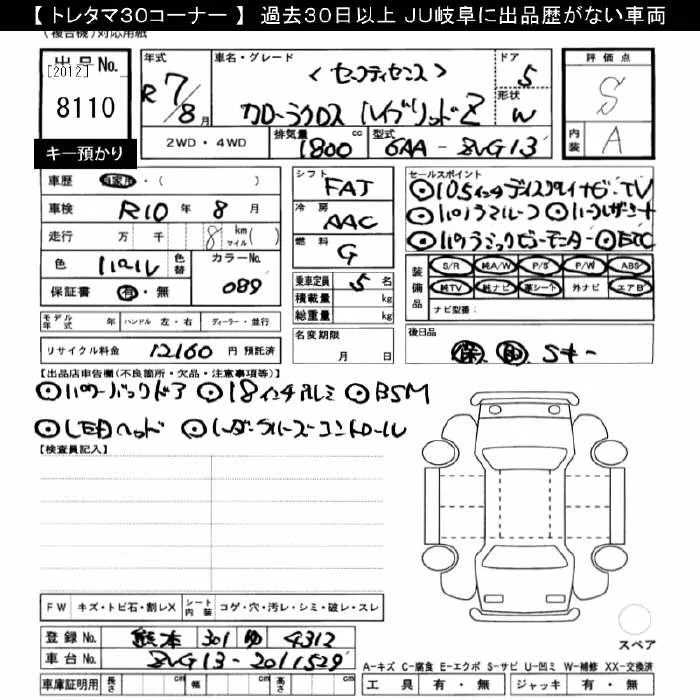 【 トレタマ30コーナー 】 過去30日以上 JU岐阜に出品歴がない車両
(複合機)対応用紙
出品No.
[2012]
8110
キー預かり
年式 R7/8月
車名・グレード <セーフティセンス>
カローラクロス ハイブリッドZ
ドア 5
形状 W
評価点 S
内装 A
2WD・4WD
排気量 1800 cc
型式 6AA-ZVG13
車歴 自家用・( )
車検 R10年 8月
走行 万 千 8 km マイル( )
色 パール 色替 カラーNo. 089
保証書 有・無
シフト FAT
冷房 AAC
燃料 G
乗車定員 5 名
積載量 kg
総重量 kg
名変期限 月 日
セールスポイント
⊙10.5インチディスプレイナビ・TV
⊙パノラマルーフ ⊙ハーフレザーシート
⊙パノラミックビューモニター ⊙ETC
装備品 S/R 純A/W P/S P/W ABS
純TV 純ナビ 革シート 外ナビ エアB
ナビ型番:
モデル年式 年 ハンドル 左・右 ディーラー・並行
リサイクル料金 12160 円 預託済
後日品
保 取 Sキー
【出品店申告欄(不良箇所・欠品・注意事項等)】
⊙パワーバックドア ⊙18インチアルミ ⊙BSM
⊙LEDヘッド ⊙レーダークルーズコントロール
【検査員記入】
FW キズ・トビ石・割レX シート内装 コゲ・穴・汚レ・シミ・破レ・スレ
登録No. 熊本 301 ゆ 4312
車台No. ZVG13-2011529
スペア
A-キズ C-腐食 E-エクボ S-サビ U-凹ミ W-補修 XX-交換済
車庫証明用 長さ cm 幅 cm 高さ cm
工具 有・無 ジャッキ 有・無